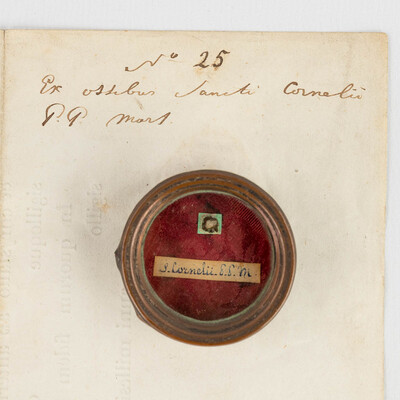 Nº 25
Ex ossibus Sancti Cornelii
P.P. Mart
S. Cornelii. P.P. M